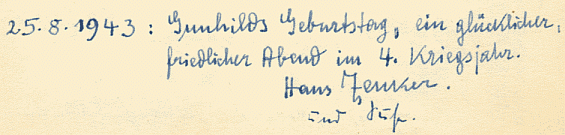 25.8.1943: Gunhilds Geburtstag, ein glücklicher,
friedlicher Abend im 4. Kriegsjahr.
Hans Zenker.
und